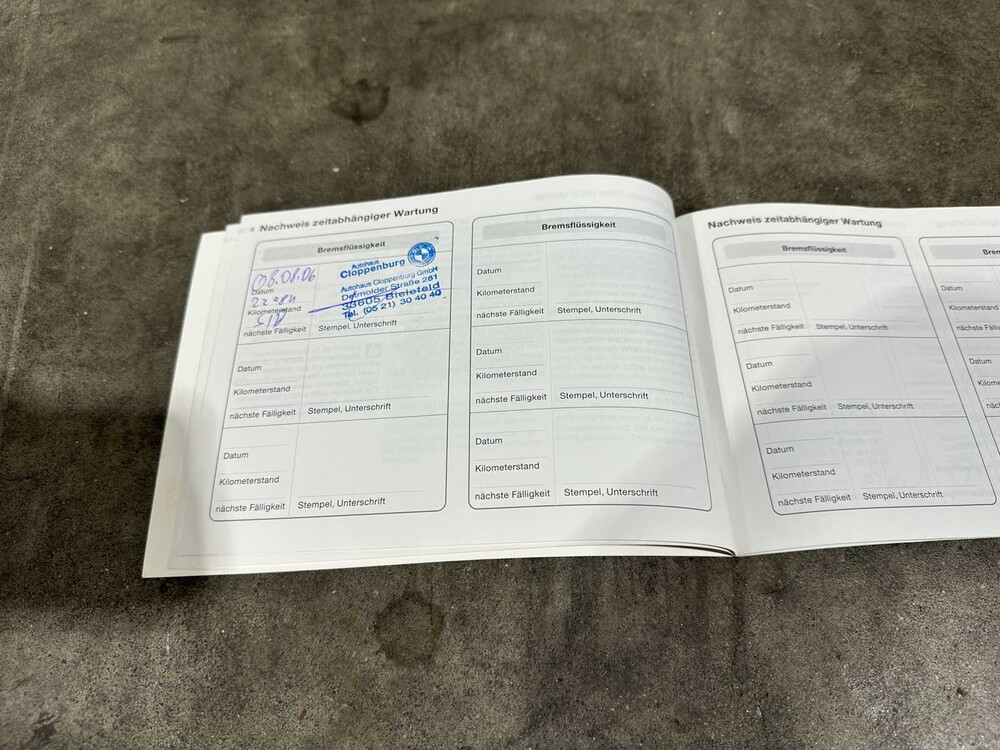 Nachweis zeitabhängiger Wartung
Bremsflüssigkeit
08.08.06
Datum
Kilometerstand
nächste Fälligkeit
Autohaus
Cloppenburg
Autohaus Cloppenburg GmbH
Detmolder Straße 261
33605 Bielefeld
Tel. (05 21) 30 40 40
Stempel, Unterschrift
Datum
Kilometerstand
nächste Fälligkeit Stempel, Unterschrift
Datum
Kilometerstand
nächste Fälligkeit Stempel, Unterschrift
Bremsflüssigkeit
Datum
Kilometerstand
nächste Fälligkeit Stempel, Unterschrift
Datum
Kilometerstand
nächste Fälligkeit Stempel, Unterschrift
Datum
Kilometerstand
nächste Fälligkeit Stempel, Unterschrift
Nachweis zeitabhängiger Wartung
Bremsflüssigkeit
Datum
Kilometerstand
nächste Fälligkeit Stempel, Unterschrift
Datum
Kilometerstand
nächste Fälligkeit Stempel, Unterschrift
Datum
Kilometerstand
nächste Fälligkeit Stempel, Unterschrift
Datum
Datum